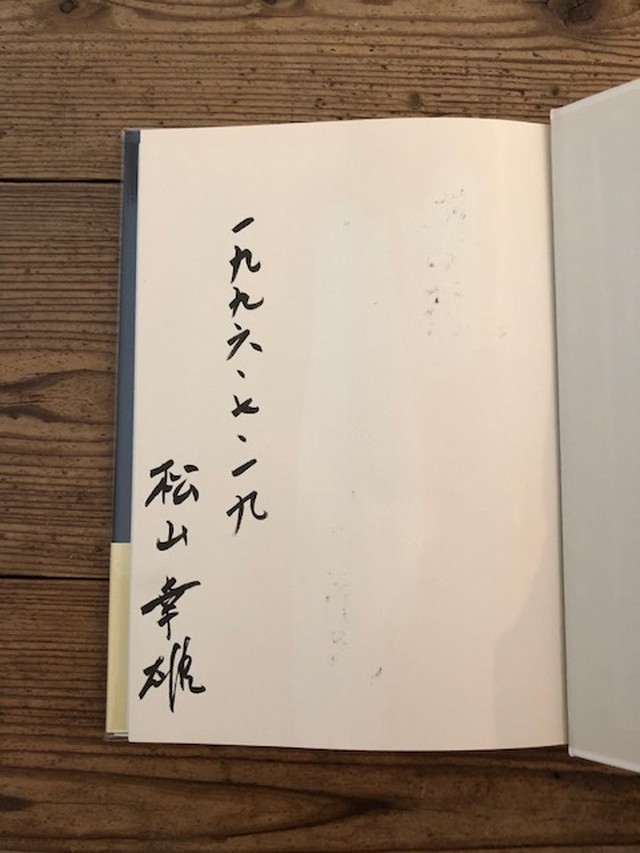 一九九六、七、一九
松山幸雄